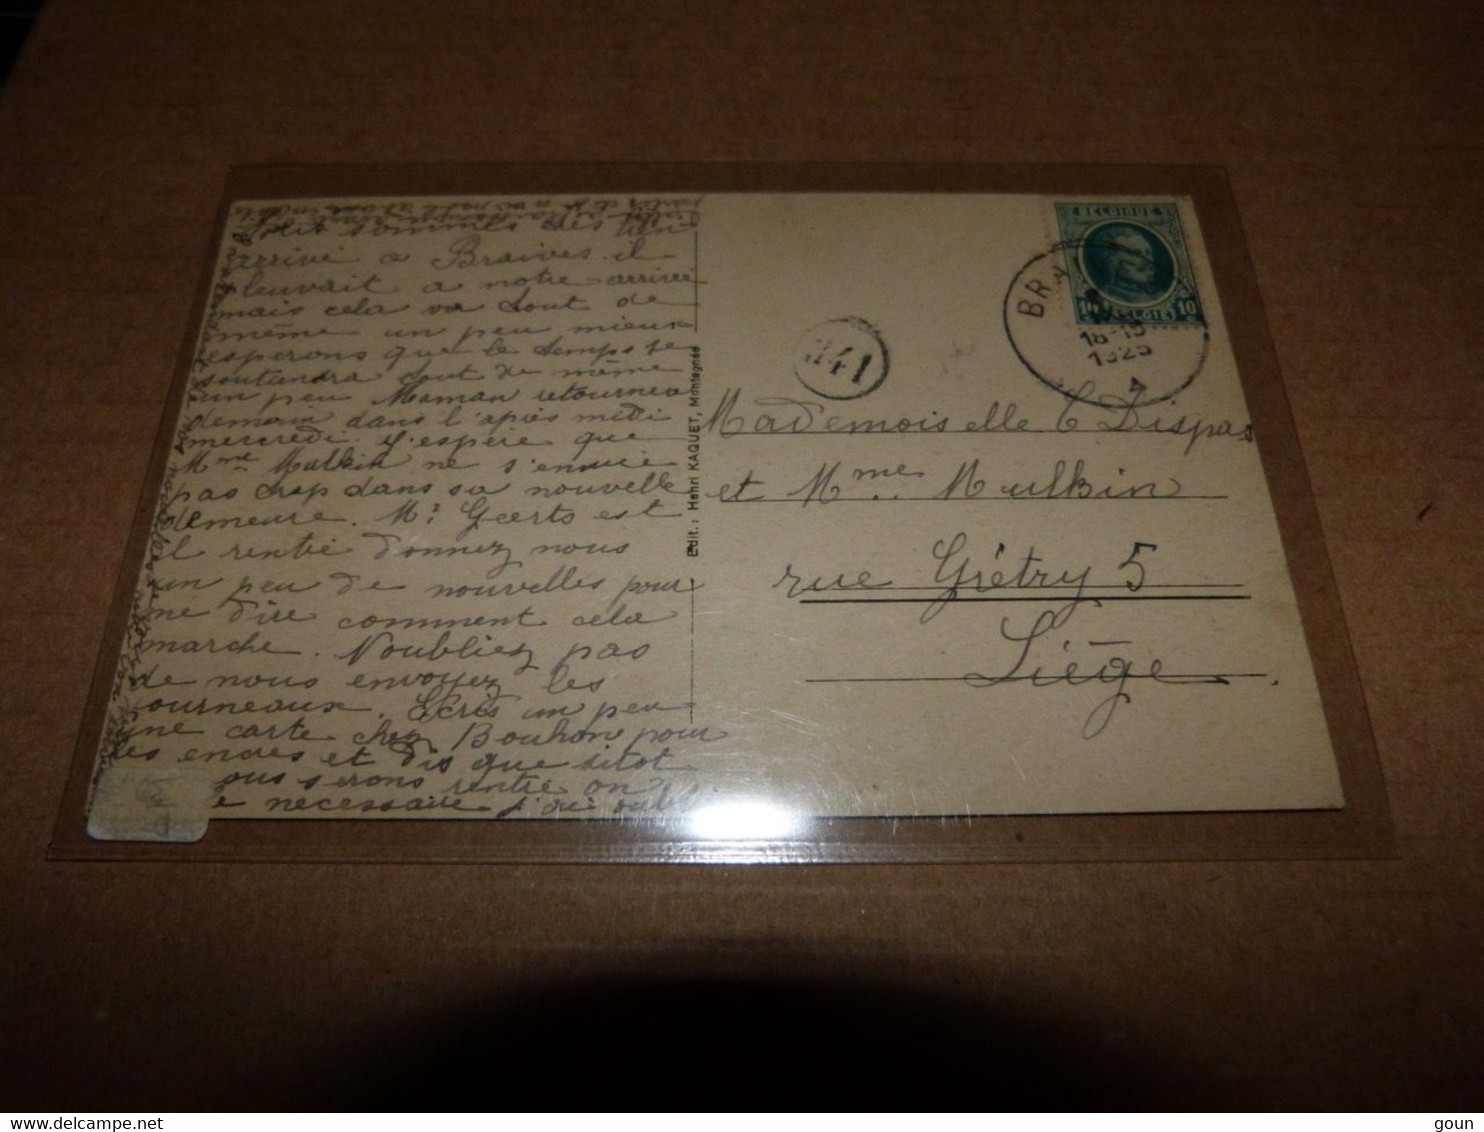 Nous sommes des bien
arrivé a Braives il
pleuvait a notre arrivée
mais cela va tout de
même un peu mieux
esperons que le temps se
soutiendra tout de même
un peu Maman retournera
demain dans l'après midi
mercredi. J'espère que
Mme Mulkin ne s'ennuie
pas trop dans sa nouvelle
demeure. Mr Geerts est
il rentré donnez nous
un peu de nouvelles pour
me dire comment cela
marche. N'oubliez pas
de nous envoyez les
journeaux. Ecris un peu
une carte chez Bouhon pour
les encres et dis que sitot
nous serons rentre on
necessaire j'ai
Edit.: Henri KAQUET, Montegnée
BELGIQUE
10 10
BELGIË
BRA
18-19
1925
141
Mademoiselle C Dispas
et Mme Mulkin
rue Grétry 5
Liège.
goun